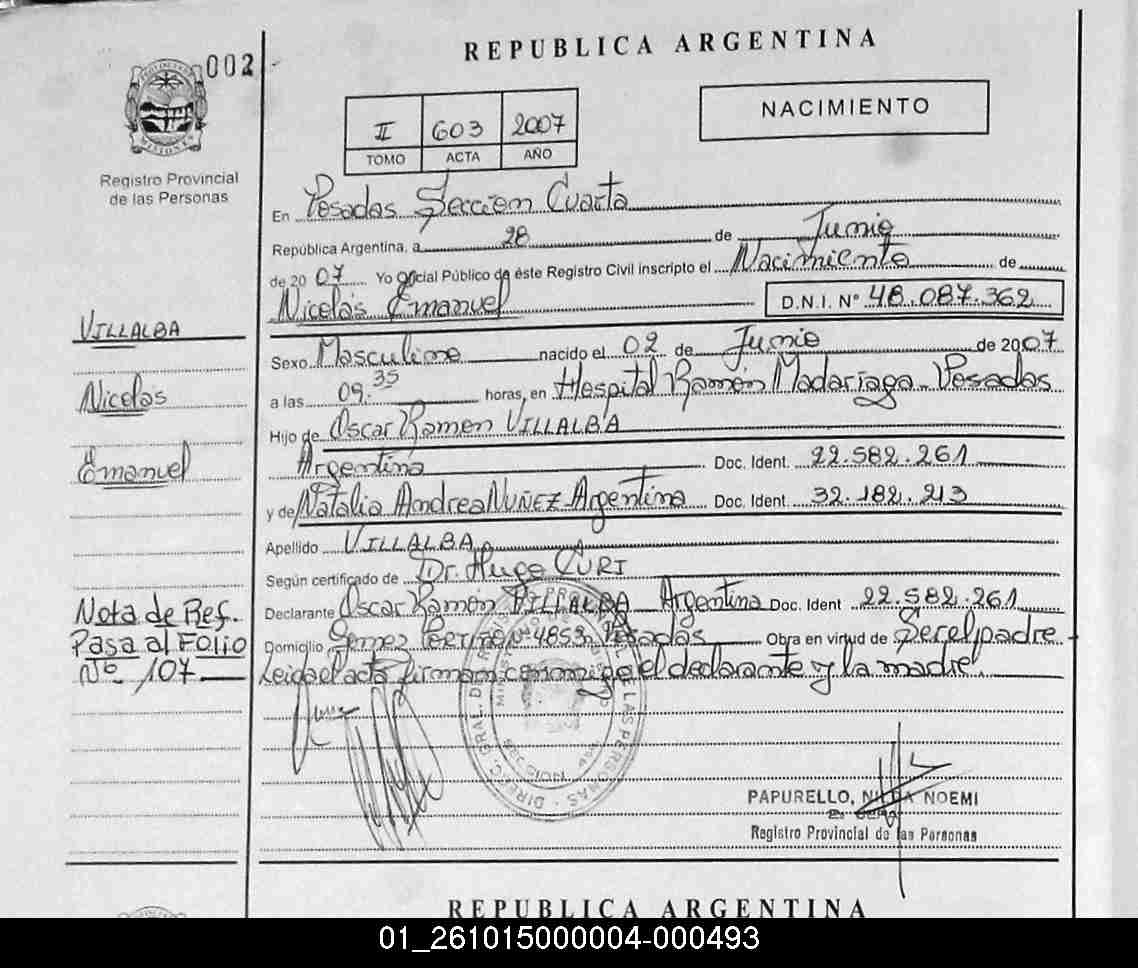 002
REPUBLICA ARGENTINA
NACIMIENTO
II 603 2007
TOMO ACTA AÑO
PROVINCIA DE MISIONES
Registro Provincial
de las Personas
En Posadas Sección Cuarta
República Argentina, a 28 de Junio
de 2007 Yo oficial Público de éste Registro Civil inscripto el Nacimiento de
Nicolás Emanuel D.N.I. N° 48.087.362
VILLALBA
Nicolás
Emanuel
Sexo Masculino nacido el 02 de Junio de 2007
a las 09.35 horas, en Hospital Ramón Madariaga - Posadas
Hijo de Oscar Ramón VILLALBA
Argentina Doc. Ident. 22.582.261
y de Natalia Andrea NUÑEZ - Argentina Doc. Ident. 32.182.213
Apellido VILLALBA
Según certificado de Dr. Hugo CURI
Declarante Oscar Ramón VILLALBA Argentina Doc. Ident 22.582.261
Domicilio N° 4853 Posadas Obra en virtud de Ser el padre
Leida el acta firman conmigo el declarante y la madre.
Nota de Ref.
Pasa al Folio
Nº 107
DIREC. GRAL. DE REGISTRO DE LAS PERSONAS
PAPURELLO, NILDA NOEMI
Registro Provincial de las Personas
REPUBLICA ARGENTINA
01_261015000004-000493